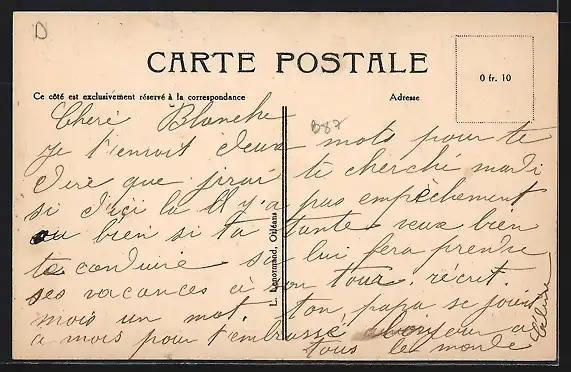 D
CARTE POSTALE
0 fr. 10
Ce côté est exclusivement réservé à la correspondance
Adresse
Cheré Blanche
je t'envoit deux mots pour te
dire que j'irai te cherché mardi
si d'ici la Il y'a pas empèchement
ou bien si ta tante veux bien
te conduire sa lui fera prendre
ses vacances a son tour. récrit.
mois un mot. ton papa se joint
a mois pour t'embrassé, bonjour a
tous le monde
Céline
L. Lenormand, Orléans